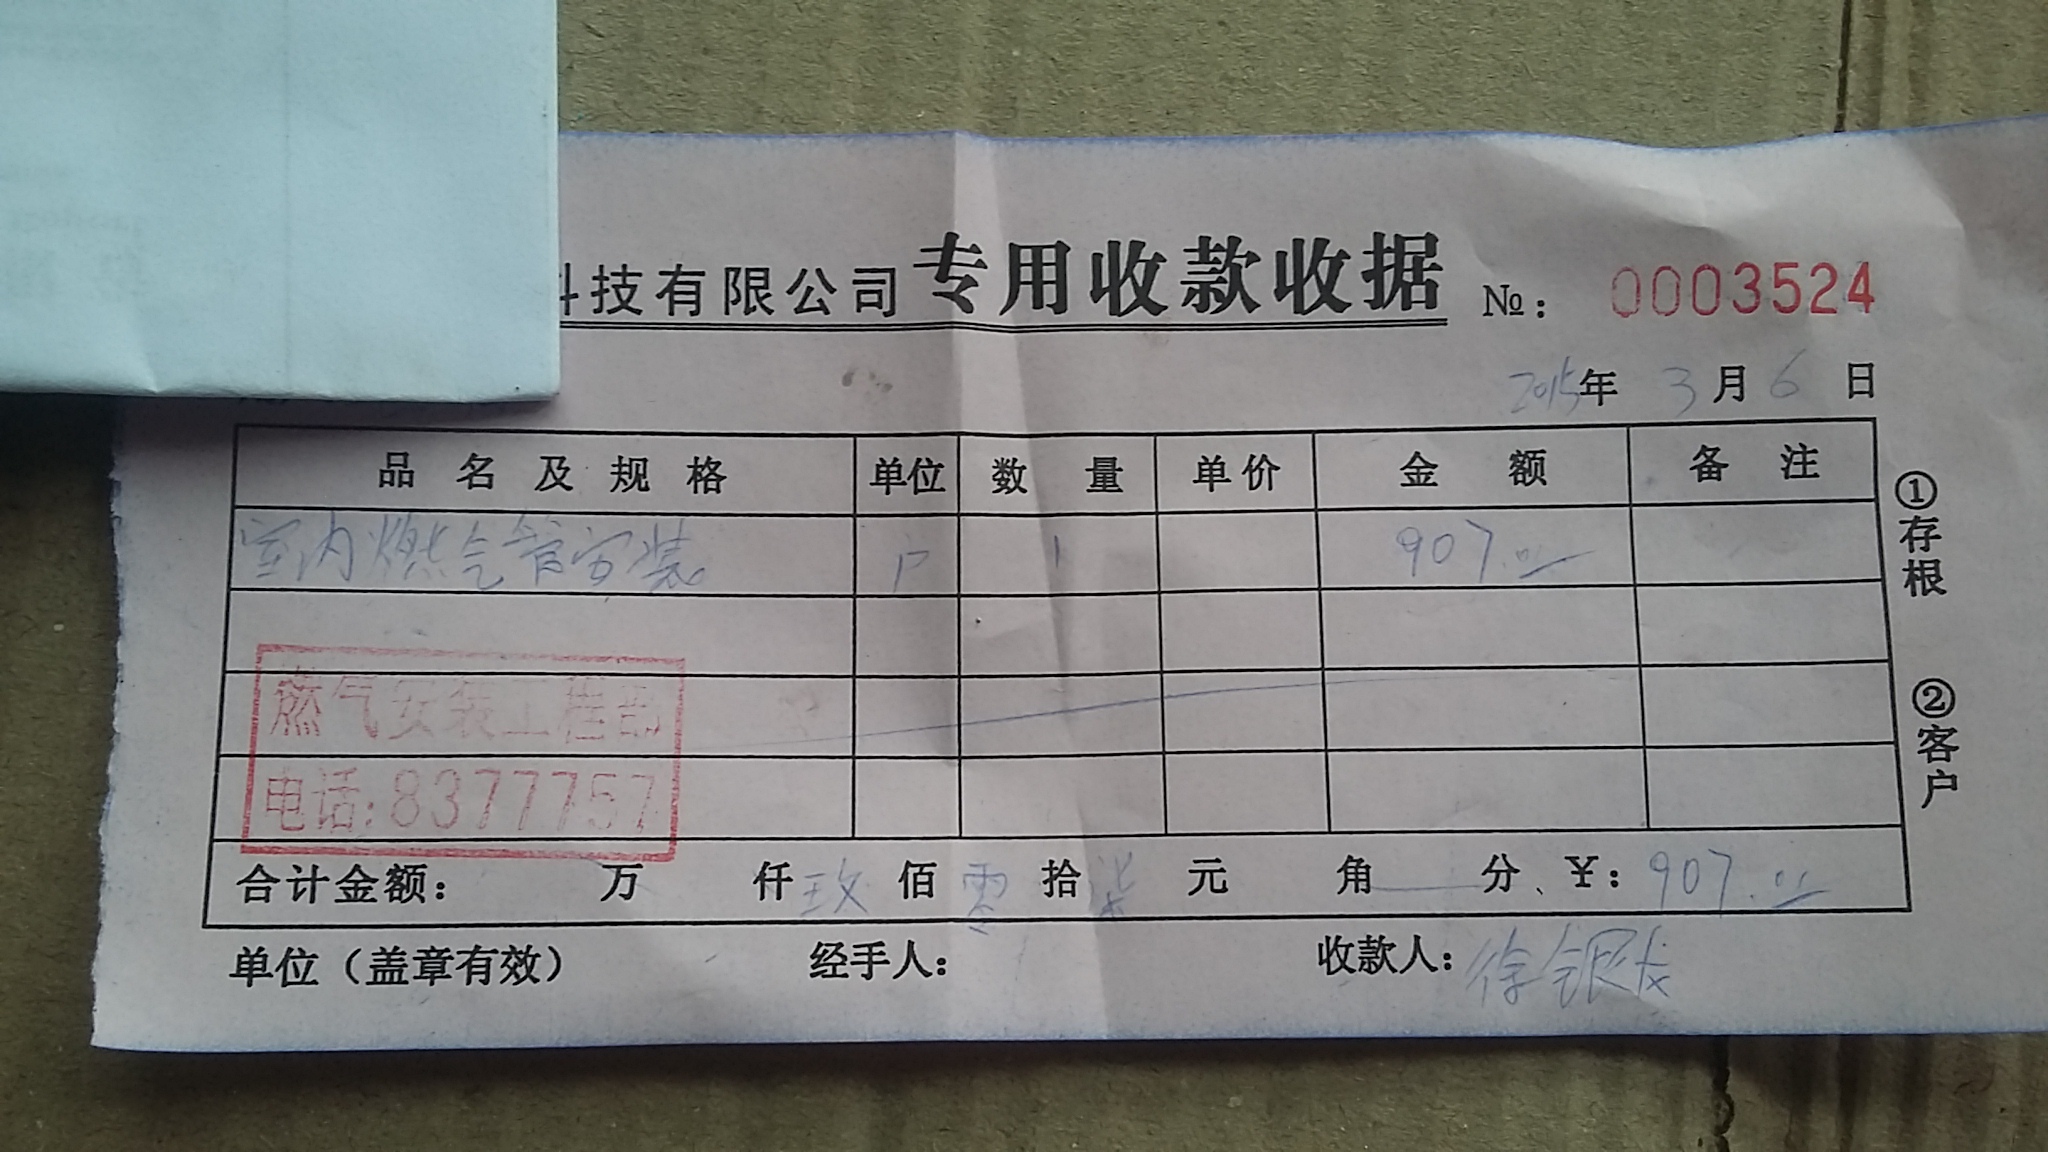 技有限公司专用收款收据 №: 0003524
2015年 3月 6日
品名及规格 单位 数量 单价 金额 备注
室内燃气管安装 户 1 907.00
燃气安装工程部
电话:8377757
合计金额: 万 仟 玖 佰 零 拾 柒 元 角 分、¥: 907.00
单位(盖章有效) 经手人: 收款人: 徐银
①存根
②客户